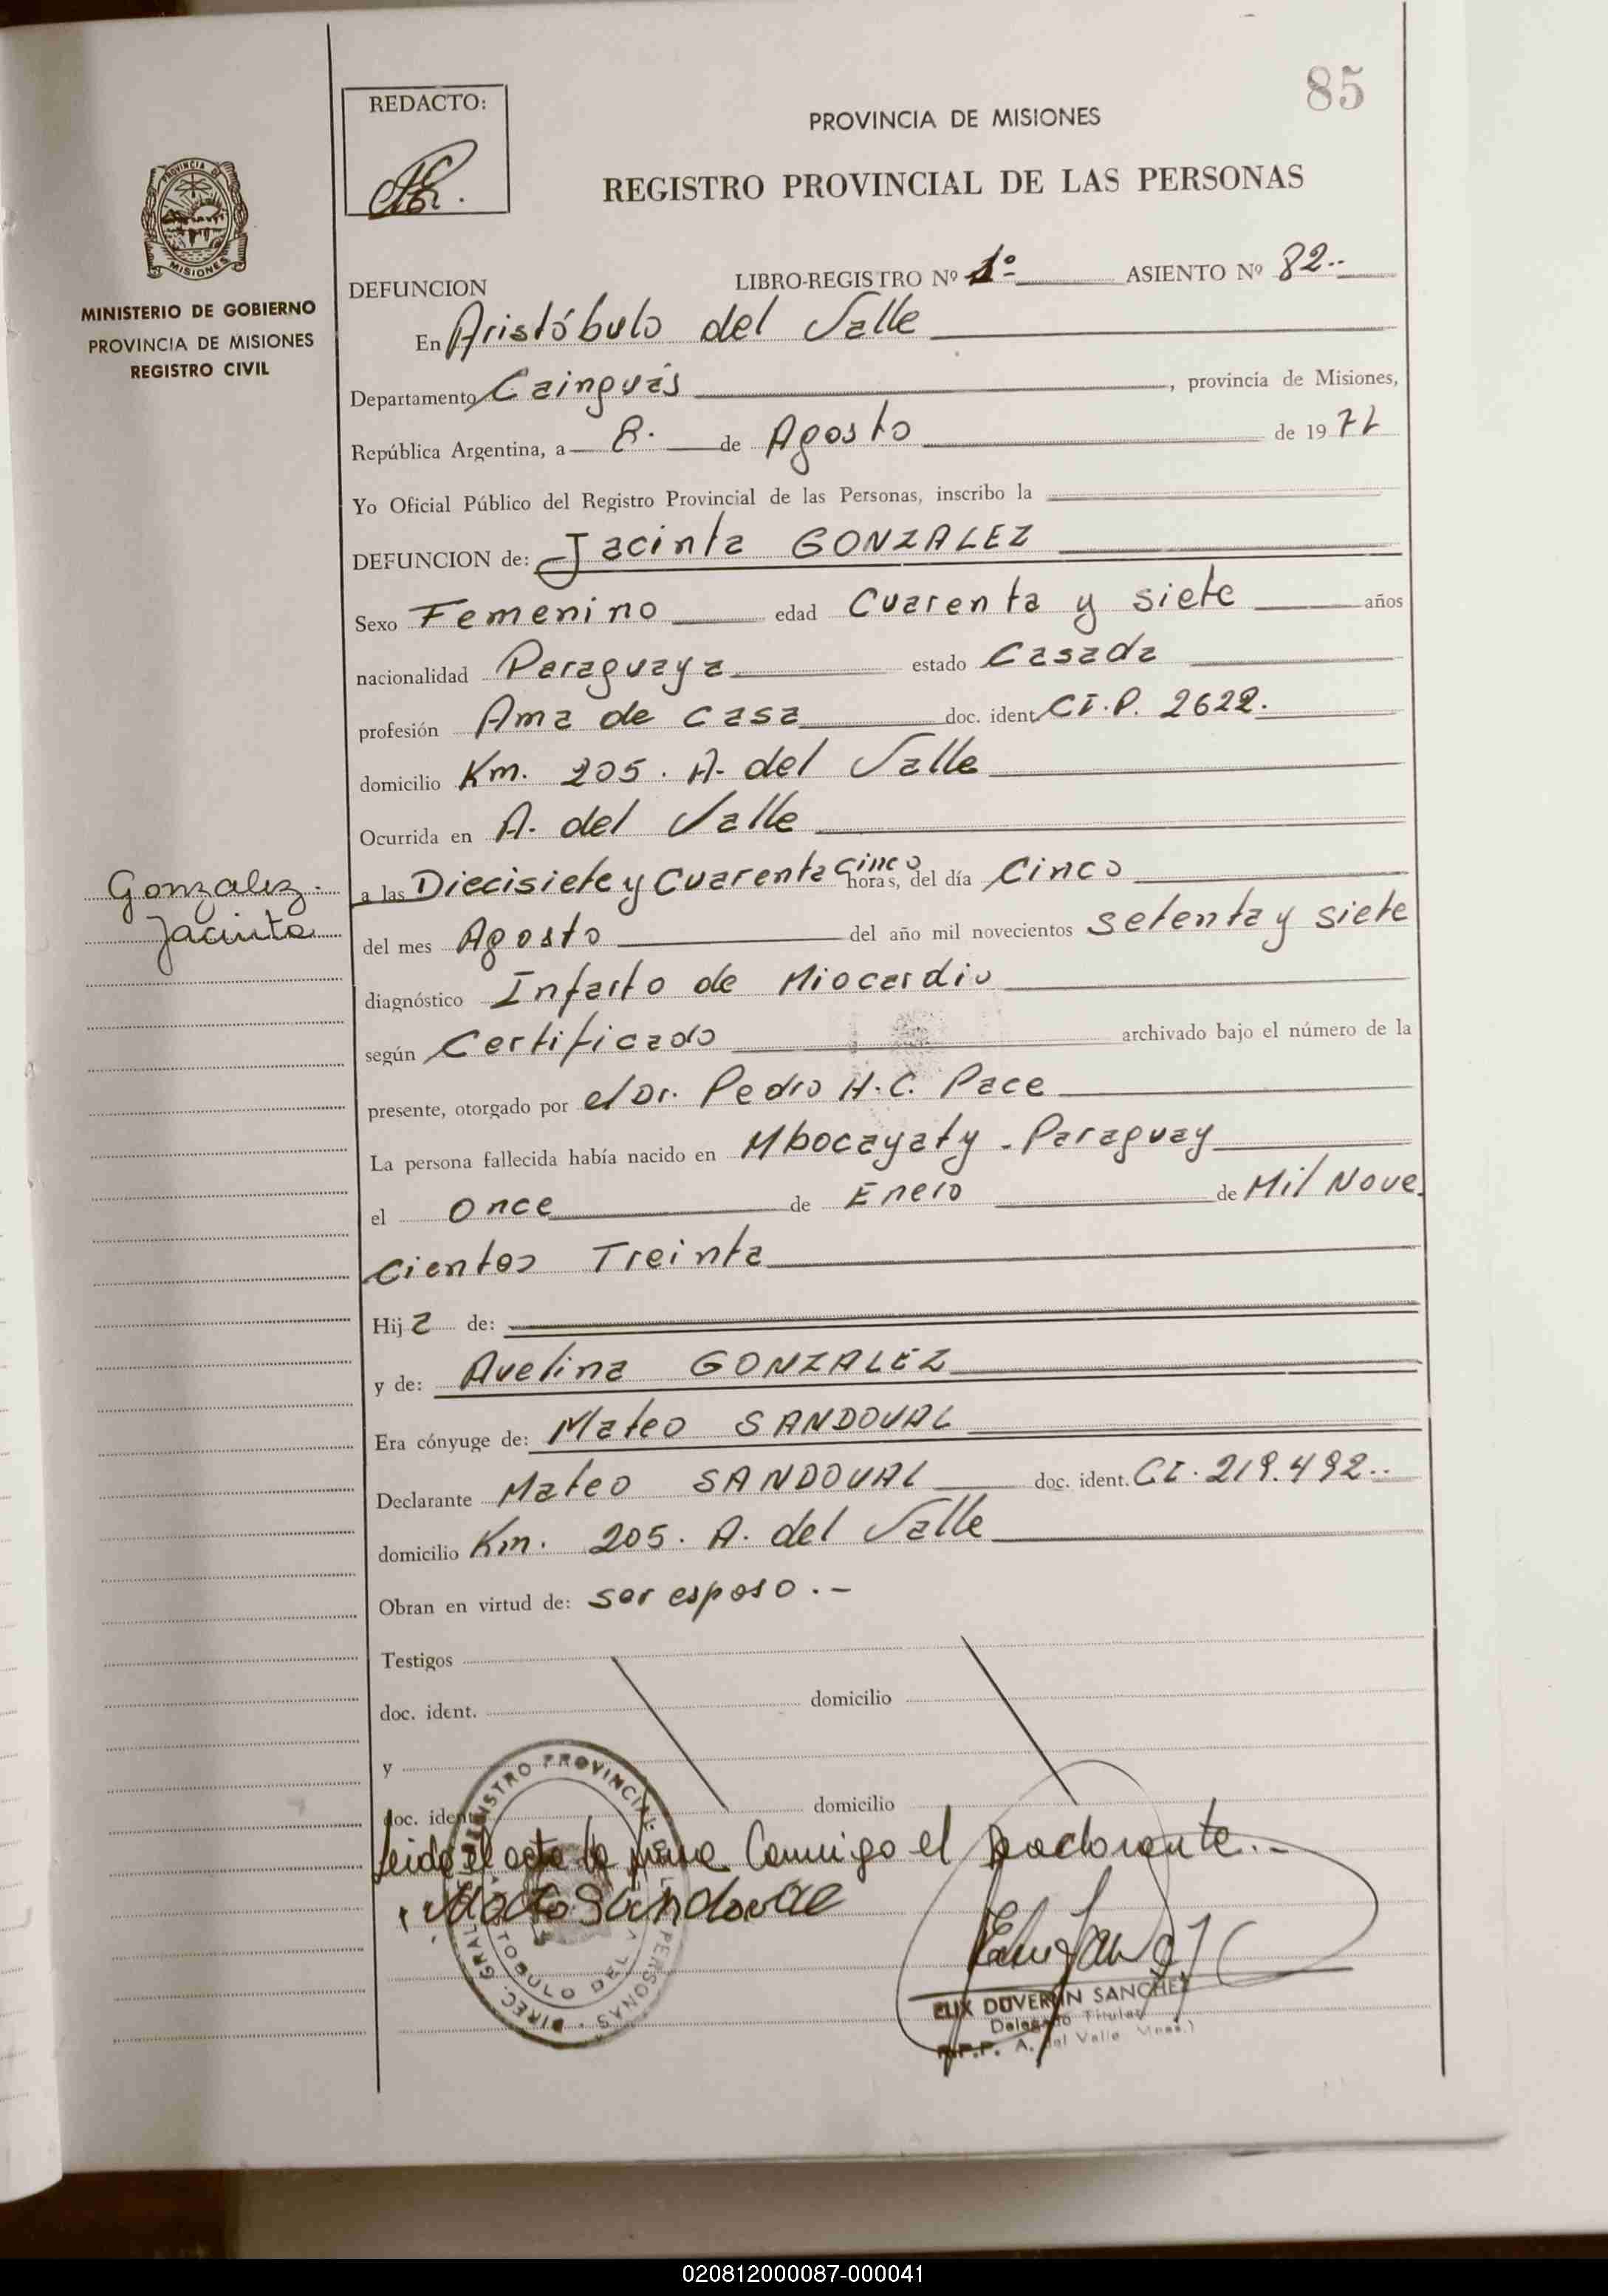 85
REDACTO:
PROVINCIA DE MISIONES
REGISTRO PROVINCIAL DE LAS PERSONAS
PROVINCIA DE
MISIONES
MINISTERIO DE GOBIERNO
PROVINCIA DE MISIONES
REGISTRO CIVIL
DEFUNCION LIBRO-REGISTRO Nº 1º ASIENTO Nº 82..
En Aristóbulo del Valle
Departamento Cainguás, provincia de Misiones,
República Argentina, a 8. de Agosto de 1977
Yo Oficial Público del Registro Provincial de las Personas, inscribo la
DEFUNCION de: Jacinta GONZALEZ
Sexo Femenino edad Cuarenta y siete años
nacionalidad Paraguaya estado Casada
profesión Ama de casa doc. ident. CI.P. 2622.
domicilio Km. 205. A. del Valle
Ocurrida en A. del Valle
Gonzalez.
Jacinta
a las Diecisiete y Cuarenta cinco horas, del día Cinco
del mes Agosto del año mil novecientos setenta y siete
diagnóstico Infarto de Miocardio
según Certificado archivado bajo el número de la
presente, otorgado por el Dr. Pedro H.C. Pace
La persona fallecida había nacido en Mbocayaty - Paraguay
el Once de Enero de Mil Nove
cientos Treinta
Hija de:
y de: Avelina GONZALEZ
Era cónyuge de: Mateo SANDOVAL
Declarante Mateo SANDOVAL doc. ident. CI. 219.492..
domicilio Km. 205. A. del Valle
Obran en virtud de: ser esposo.-
Testigos
doc. ident. domicilio
y
doc. ident. domicilio
Leida el acta la firma Conmigo el Declarante.-
Mateo Sandoval
REGISTRO PROVINCIAL PERSONAS · DIREC. GRAL.
ELIX DUVERLIN SANCHEZ
Delegado Titular
R.P.P. A. del Valle (Mnes.)
020812000087-000041